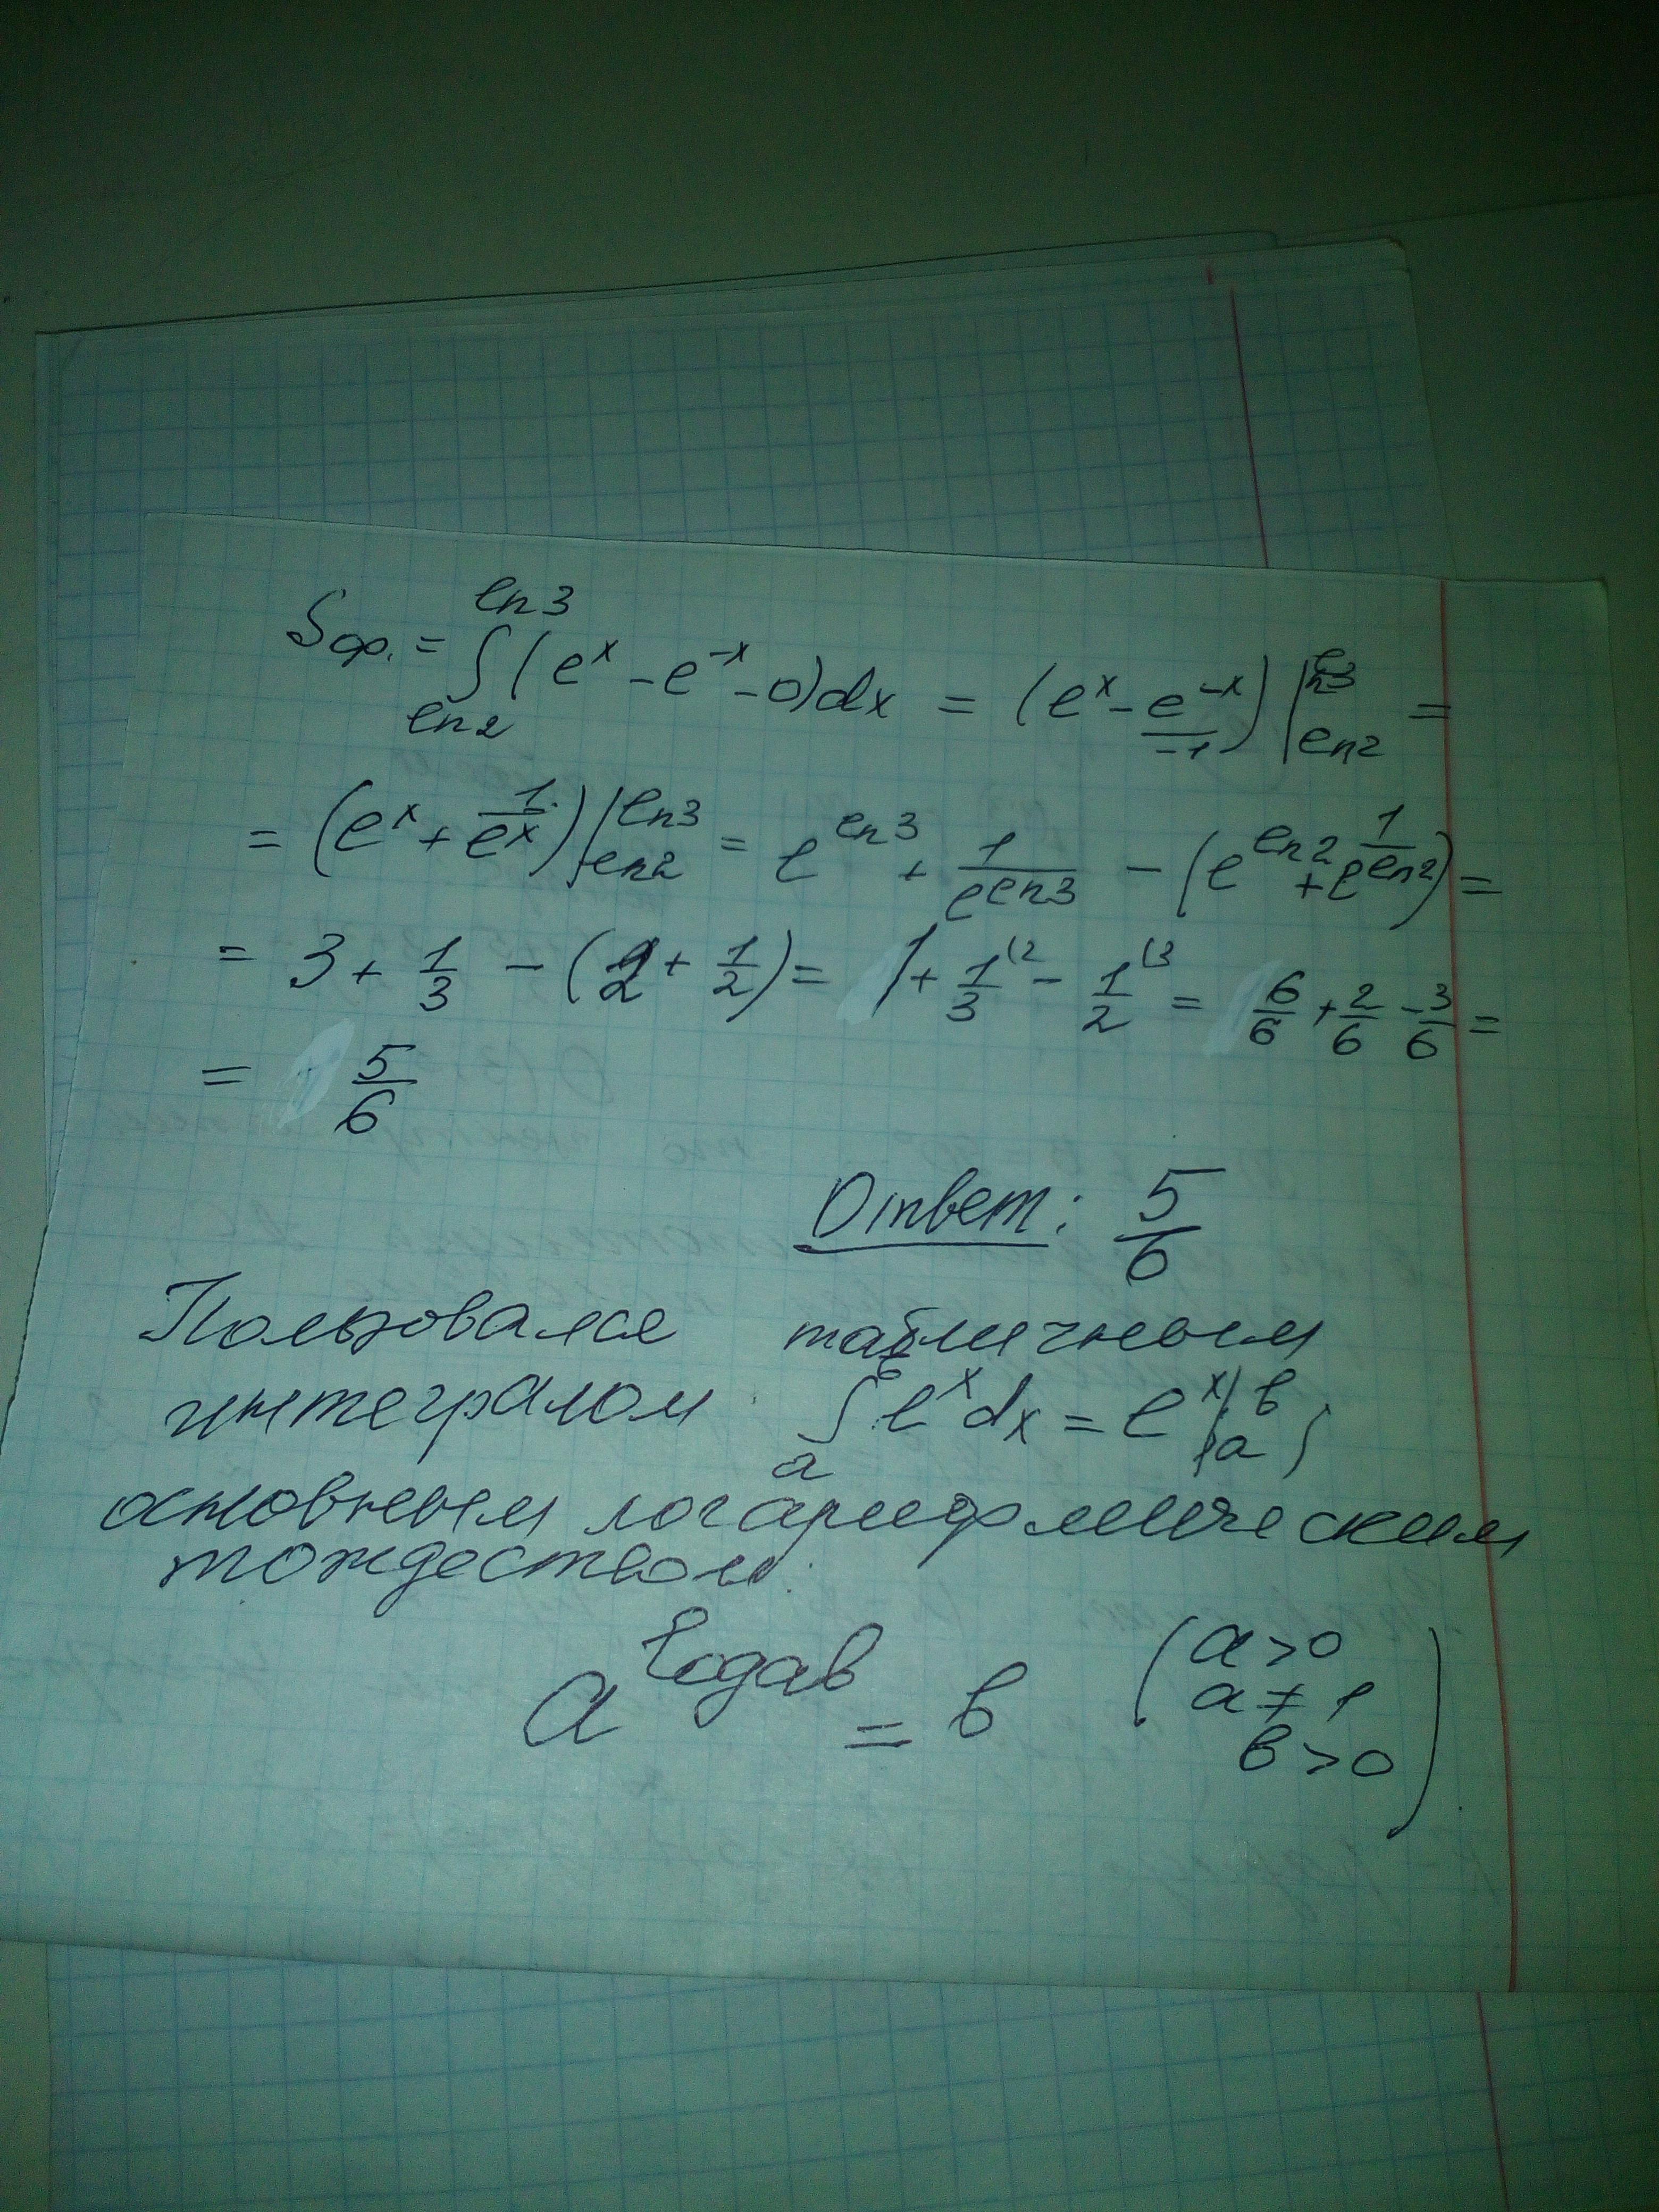 Sф. = ∫_{ln2}^{ln3} (e^x - e^{-x} - 0)dx = (e^x - e^{-x}/-1) |_{ln2}^{ln3} =
= (e^x + 1/e^x) |_{ln2}^{ln3} = e^{ln3} + 1/e^{ln3} - (e^{ln2} + 1/e^{ln2}) =
= 3 + 1/3 - (2 + 1/2) = 1 + 1/3^{(2} - 1/2^{(3} = 6/6 + 2/6 - 3/6 =
= 5/6
Ответ: 5/6
Пользовался табличным
интегралом ∫_a^b e^x dx = e^x |_a^b ;
основным логарифмическим
тождеством:
a^{log_a b} = b (a > 0
a ≠ 1
b > 0)